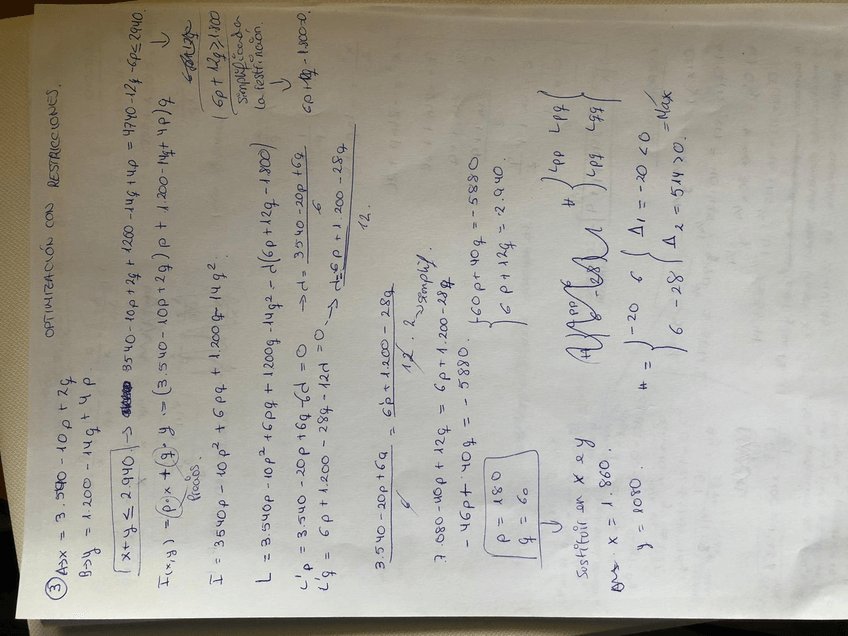 OPTIMIZACIÓN CON RESTRICCIONES.
③ A→x = 3.540 - 10p + 2q
B→y = 1.200 - 14q + 4p.
x+y ≤ 2.940 → 3540 - 10p + 2q + 1200 - 14q + 4p = 4740 - 12q - 6p ≤ 2940.
I(x,y) = p·x + q·y = (3.540 - 10p + 2q) p + (1.200 - 14q + 4p) q
Precios.
6p + 12q ≥ 1.800
simplificada
la restricción.
6p + 12q - 1.800 = 0.
I = 3540p - 10p² + 6pq + 1.200q - 14q².
L = 3.540p - 10p² + 6pq + 1200q - 14q² - d(6p + 12q - 1.800)
L'p = 3.540 - 20p + 6q - 6d = 0 → d = 3.540 - 20p + 6q / 6
L'q = 6p + 1.200 - 28q - 12d = 0. → d = 6p + 1.200 - 28q / 12.
3.540 - 20p + 6q / 6 = 6p + 1.200 - 28q / 12 · 2 → simplif.
7.080 - 40p + 12q = 6p + 1.200 - 28q
- 46p + 40q = - 5880.
-60p + 40q = - 5880.
6p + 12q = 2.940.
p = 180
q = 60
Sustituir en x e y
x = 1.860.
y = 1080.
H Lpp Lpq
Lpq Lqq
H = -20 6
6 -28
Δ1 = -20 < 0
Δ2 = 514 > 0.
= Máx